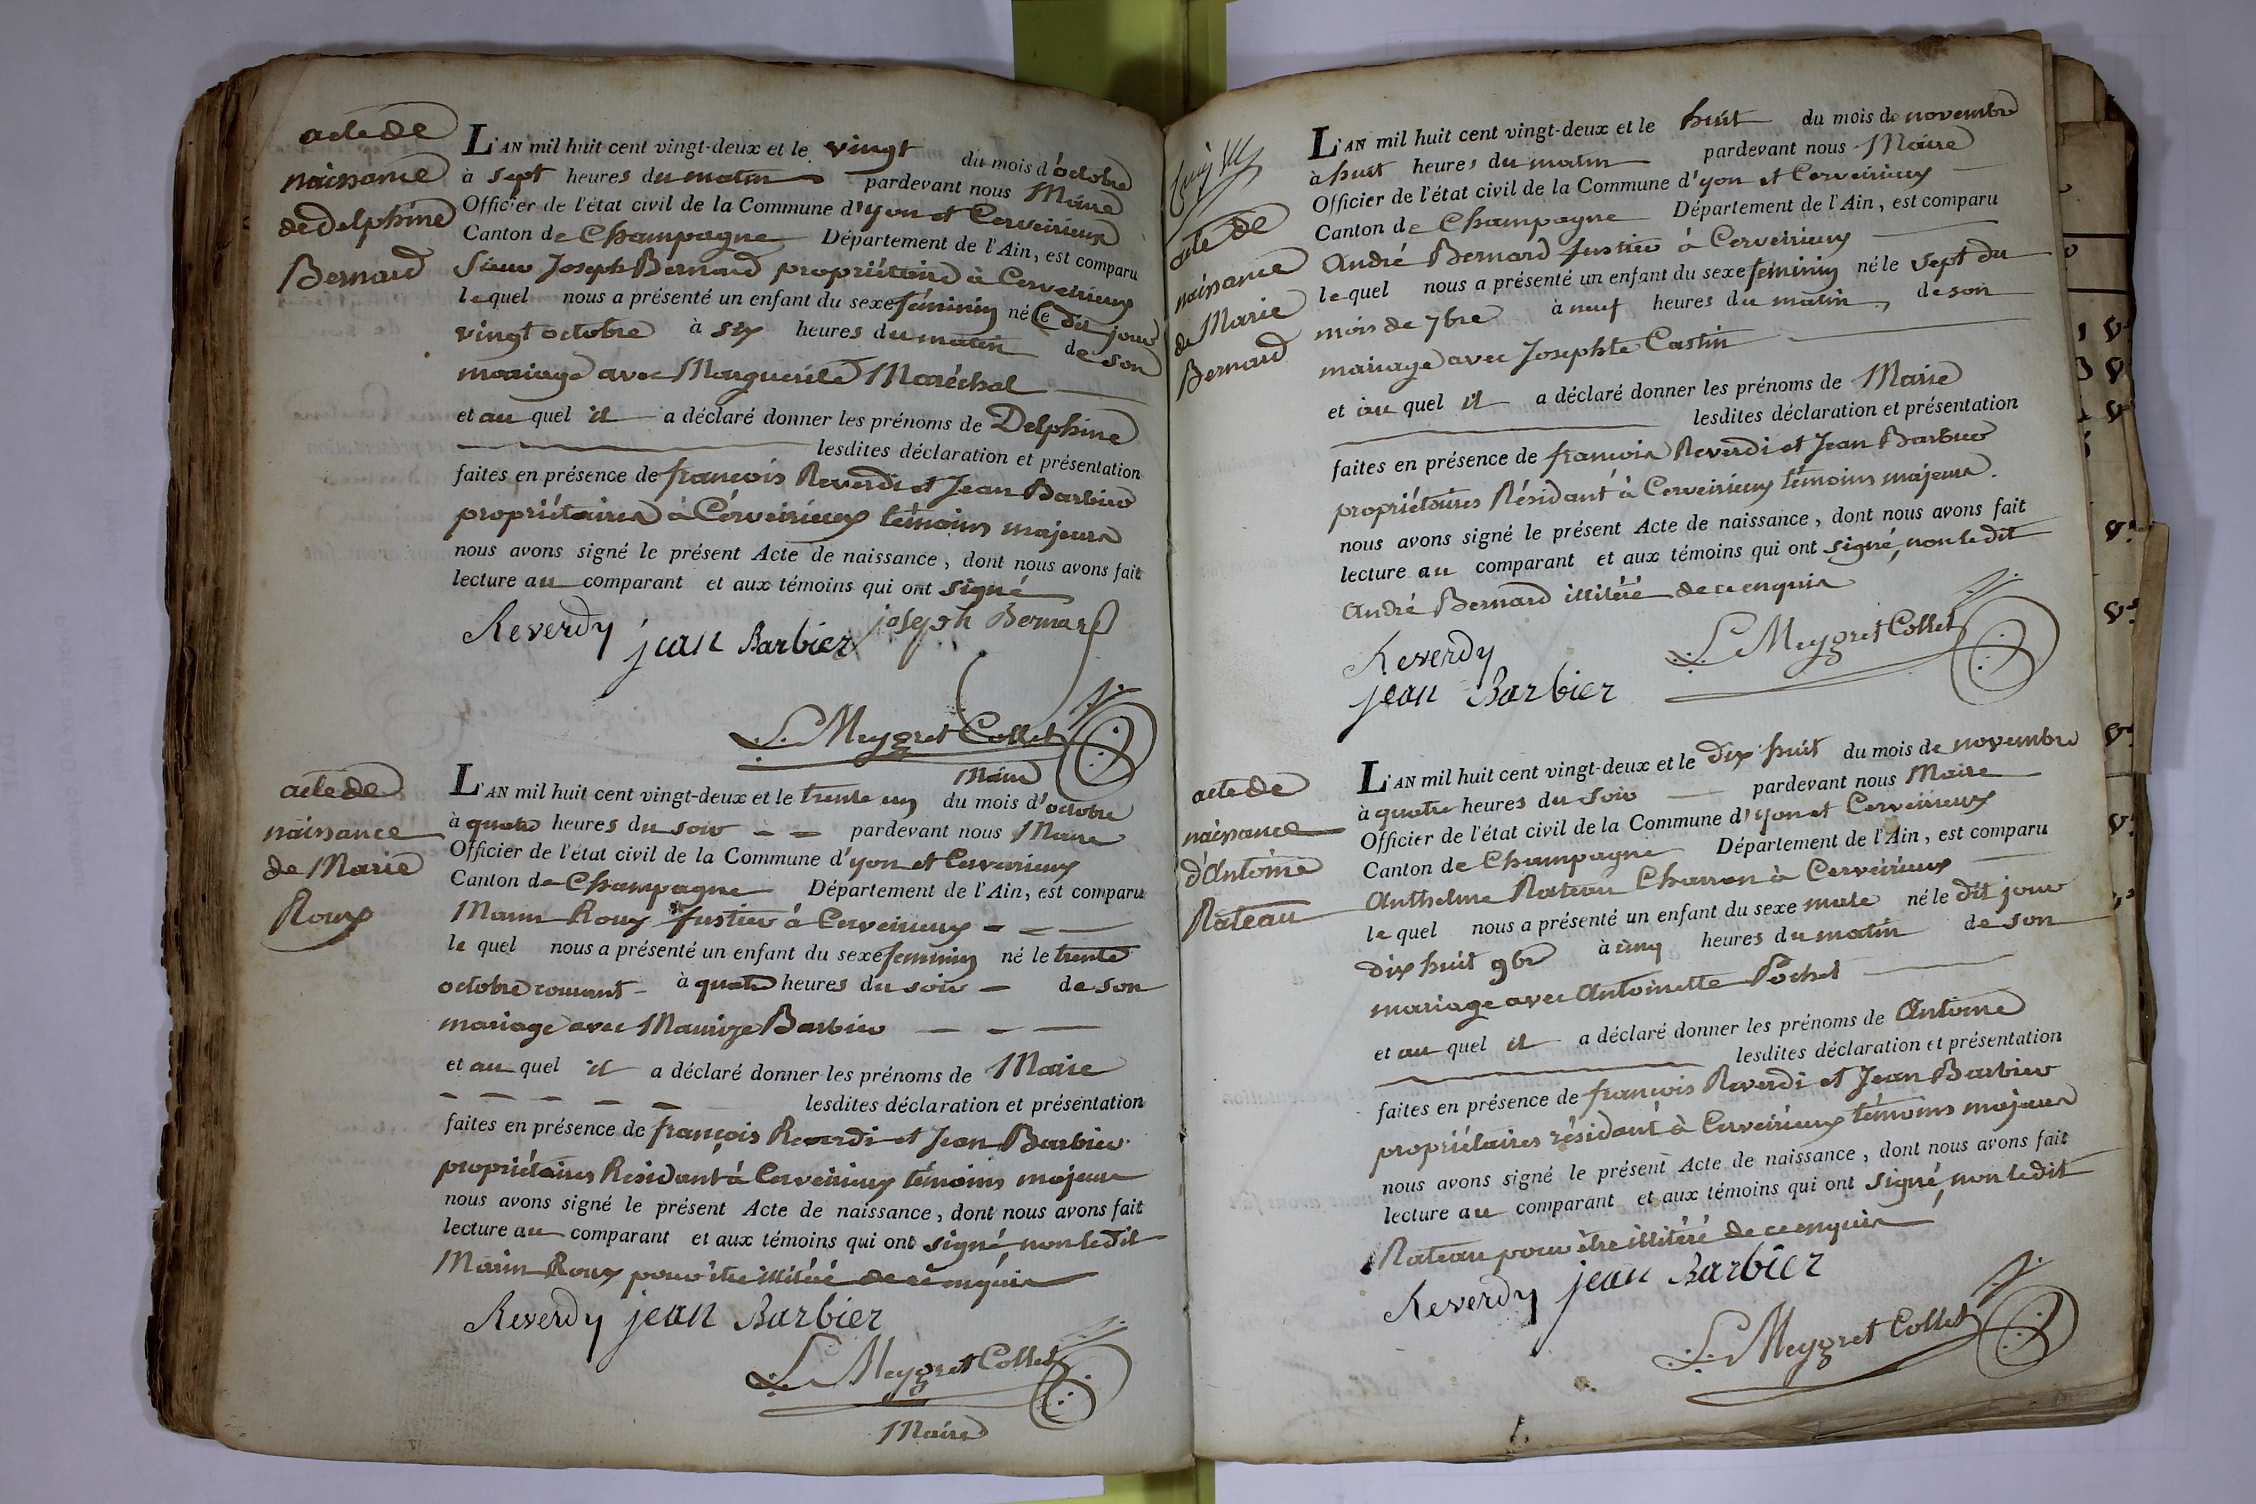 acte de
naissance
de Delphine
Bernard
L'AN mil huit cent vingt-deux et le vingt du mois d'octobre
à sept heures du matin pardevant nous Maire
Officier de l'état civil de la Commune d'yon et Cerveirieux
Canton de Champagne Département de l'Ain, est comparu
Sieur Joseph Bernard propriétaire à Cerveirieux
lequel nous a présenté un enfant du sexe féminin né le dit jour
vingt octobre à six heures du matin de son
mariage avec Marguerite Maréchal
et au quel il a déclaré donner les prénoms de Delphine
lesdites déclaration et présentation
faites en présence de françois Reverdi et Jean Barbier
propriétaires à Cerveirieux témoins majeurs
nous avons signé le présent Acte de naissance, dont nous avons fait
lecture au comparant et aux témoins qui ont signé
Reverdy jean Barbier joseph Bernard
L. Meygret Collet
Maire
acte de
naissance
de Marie
Roux
L'AN mil huit cent vingt-deux et le trente un du mois d'octobre
à quatre heures du soir pardevant nous Maire
Officier de l'état civil de la Commune d'yon et Cerveirieux
Canton de Champagne Département de l'Ain, est comparu
Marin Roux fustier à Cerveirieux
le quel nous a présenté un enfant du sexe feminin né le trente
octobre courant à quatre heures du soir de son
mariage avec Maurize Barbier
et au quel il a déclaré donner les prénoms de Marie
lesdites déclaration et présentation
faites en présence de françois Reverdi et Jean Barbier
propriétaires Résidant à Cerveirieux témoins majeurs
nous avons signé le présent Acte de naissance, dont nous avons fait
lecture au comparant et aux témoins qui ont signé, non le dit
Marin Roux pour être illitéré de ce enquis
Reverdy jean Barbier
L. Meygret Collet
Maire
acte de
naissance
de Marie
Bernard
L'AN mil huit cent vingt-deux et le huit du mois de novembre
à huit heures du matin pardevant nous Maire
Officier de l'état civil de la Commune d'yon et Cerveirieux
Canton de Champagne Département de l'Ain, est comparu
André Bernard fustier à Cerveirieux
lequel nous a présenté un enfant du sexe féminin né le sept du
mois de 9bre à neuf heures du matin, de son
mariage avec Josephte Castin
et au quel il a déclaré donner les prénoms de Marie
lesdites déclaration et présentation
faites en présence de françois Reverdi et Jean Barbier
propriétaires Résidant à Cerveirieux témoins majeurs.
nous avons signé le présent Acte de naissance, dont nous avons fait
lecture au comparant et aux témoins qui ont signé, non le dit
André Bernard illitéré de ce enquis
Reverdy
jean Barbier
L. Meygret Collet
acte de
naissance
d'Antoine
Rateau
L'AN mil huit cent vingt-deux et le dix huit du mois de novembre
à quatre heures du soir pardevant nous Maire
Officier de l'état civil de la Commune d'yon et Cerveirieux
Canton de Champagne Département de l'Ain, est comparu
Anthelme Rateau Charron à Cerveirieux
le quel nous a présenté un enfant du sexe male né le dit jour
dix huit 9bre à cinq heures du matin de son
mariage avec Antoinette Pochet
et au quel il a déclaré donner les prénoms de Antoine
lesdites déclaration et présentation
faites en présence de françois Reverdi et Jean Barbier
propriétaires résidant à Cerveirieux témoins majeurs
nous avons signé le présent Acte de naissance, dont nous avons fait
lecture au comparant et aux témoins qui ont signé, non le dit
Rateau pour être illitéré de ce enquis
Reverdy jean Barbier
L. Meygret Collet